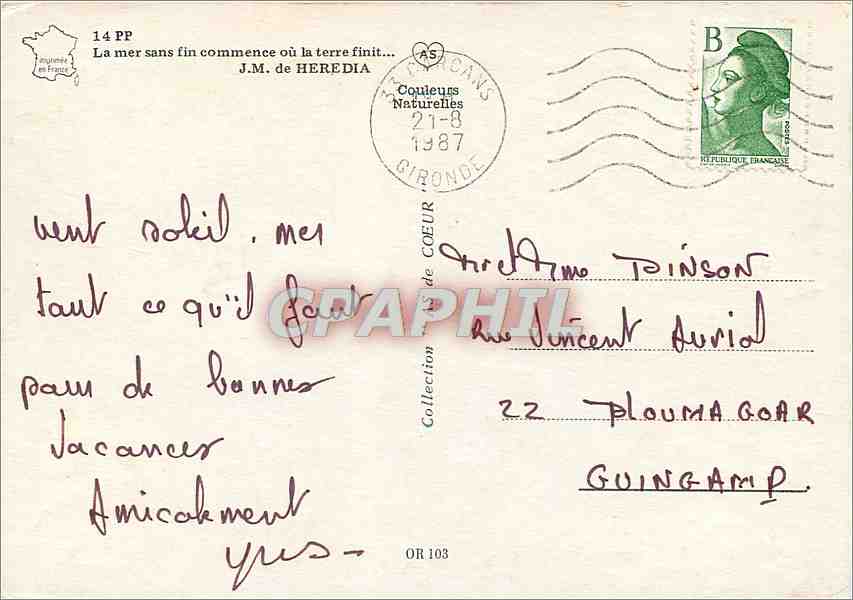 14 PP
La mer sans fin commence où la terre finit...
J.M. de HEREDIA
imprimée
en France
AS
Couleurs
Naturelles
33
21-8
1987
GIRONDE
B
POSTES
RÉPUBLIQUE FRANÇAISE
vent soleil, mer
tout ce qu'il faut
pour de bonnes
vacances
Amicalement
Yves -
Collection AS de COEUR
OR 103
Mr et Mme PINSON
Rue Vincent Auriol
22 PLOUMAGOAR
GUINGAMP.
CPAPHIL